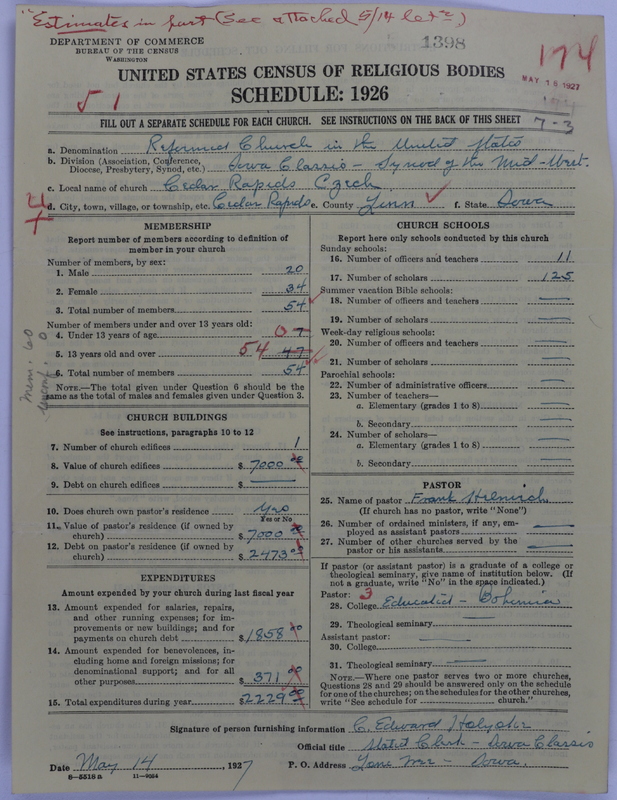 Estimates in part (See attached 5/14 let.)
DEPARTMENT OF COMMERCE
BUREAU OF THE CENSUS
WASHINGTON
1398
174
MAY 16 1927
UNITED STATES CENSUS OF RELIGIOUS BODIES
SCHEDULE: 1926
51
FILL OUT A SEPARATE SCHEDULE FOR EACH CHURCH. SEE INSTRUCTIONS ON THE BACK OF THIS SHEET
7-3
a. Denomination Reformed Church in the United States
b. Division (Association, Conference, Diocese, Presbytery, Synod, etc.) Iowa Classis - Synod of the Mid-West.
c. Local name of church Cedar Rapids Czech
d. City, town, village, or township, etc. Cedar Rapids e. County Linn f. State Iowa
MEMBERSHIP
Report number of members according to definition of
member in your church
Number of members, by sex:
1. Male 20
2. Female 34
3. Total number of members 54
Number of members under and over 13 years old:
4. Under 13 years of age 0 7
5. 13 years old and over 54 47
6. Total number of members 54
NOTE.—The total given under Question 6 should be
same as the total of males and females given under Question 3.
Mem: 60
CHURCH BUILDINGS
See instructions, paragraphs 10 to 12
7. Number of church edifices 1
8. Value of church edifices $ 7000 00
9. Debt on church edifices $ —
10. Does church own pastor's residence Yes
Yes or No
11. Value of pastor's residence (if owned by
church) $ 7000 00
12. Debt on pastor's residence (if owned by
church) $ 2473 00
EXPENDITURES
Amount expended by your church during last fiscal year
13. Amount expended for salaries, repairs,
and other running expenses; for im-
provements or new buildings; and for
payments on church debt $ 1858 00
14. Amount expended for benevolences, in-
cluding home and foreign missions; for
denominational support; and for all
other purposes $ 371 00
15. Total expenditures during year $ 2229 00
CHURCH SCHOOLS
Report here only schools conducted by this church
Sunday schools:
16. Number of officers and teachers 11
17. Number of scholars 125
Summer vacation Bible schools:
18. Number of officers and teachers —
19. Number of scholars —
Week-day religious schools:
20. Number of officers and teachers —
21. Number of scholars —
Parochial schools:
22. Number of administrative officers —
23. Number of teachers—
a. Elementary (grades 1 to 8) —
b. Secondary —
24. Number of scholars—
a. Elementary (grades 1 to 8) —
b. Secondary —
PASTOR
25. Name of pastor Frank
(If church has no pastor, write "None")
26. Number of ordained ministers, if any, em-
ployed as assistant pastors —
27. Number of other churches served by the
pastor or his assistants —
If pastor (or assistant pastor) is a graduate of a college or
theological seminary, give name of institution below. (If
not a graduate, write "No" in the space indicated.)
Pastor: 3
28. College Educated - Bohemia
29. Theological seminary —
Assistant pastor:
30. College —
31. Theological seminary —
NOTE.—Where one pastor serves two or more churches,
Questions 28 and 29 should be answered only on the schedule
for one of the churches; on the schedules for the other churches,
write "See schedule for church."
Signature of person furnishing information C. Edward
Official title Stated Clerk - Iowa Classis
Date May 14, 1927 P. O. Address Lone Tree - Iowa.
8—5518 a 11—9064